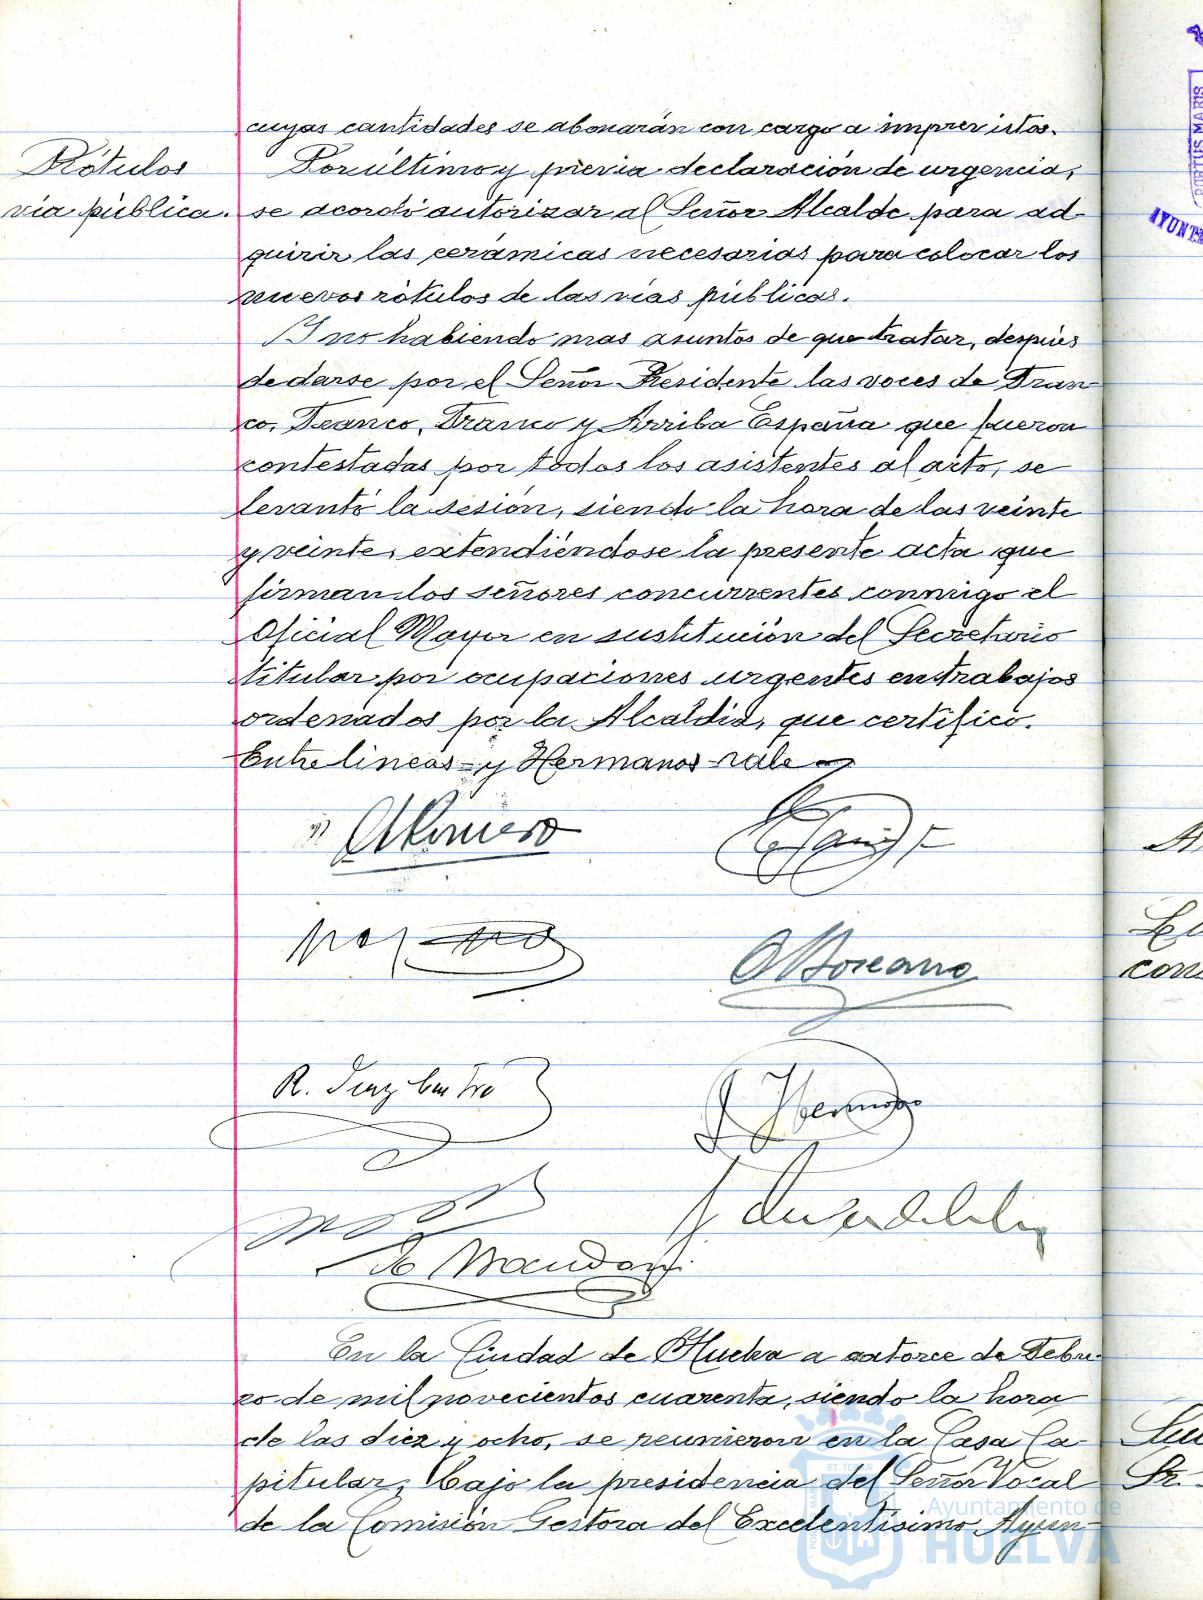 cuyas cantidades se abonarán con cargo a imprevistos.
Rótulos
vía pública.
Por último y previa declaración de urgencia,
se acordó autorizar al Señor Alcalde para ad-
quirir las cerámicas necesarias para colocar los
nuevos rótulos de las vías públicas.
Y no habiendo mas asuntos de que tratar, después
de darse por el Señor Presidente las voces de Fran-
co, Franco, Franco y Arriba España que fueron
contestadas por todos los asistentes al acto, se
levantó la sesión, siendo la hora de las veinte
y veinte, extendiéndose la presente acta que
firman los señores concurrentes conmigo el
Oficial Mayor en sustitución del Secretario
titular por ocupaciones urgentes en trabajos
ordenados por la Alcaldía, que certifico.
Entre lineas - y Hermanos - vale
A Romero
R. Diaz Castro
J Hermoso
En la Ciudad de Huelva a catorce de Febre-
ro de mil novecientos cuarenta, siendo la hora
de las diez y ocho, se reunieron en la Casa Ca-
pitular, bajo la presidencia del Señor Vocal
de la Comisión Gestora del Excelentísimo Ayun-
PORTUS MARIS
AYUNT
con
Sr.
Ayuntamiento de
HUELVA